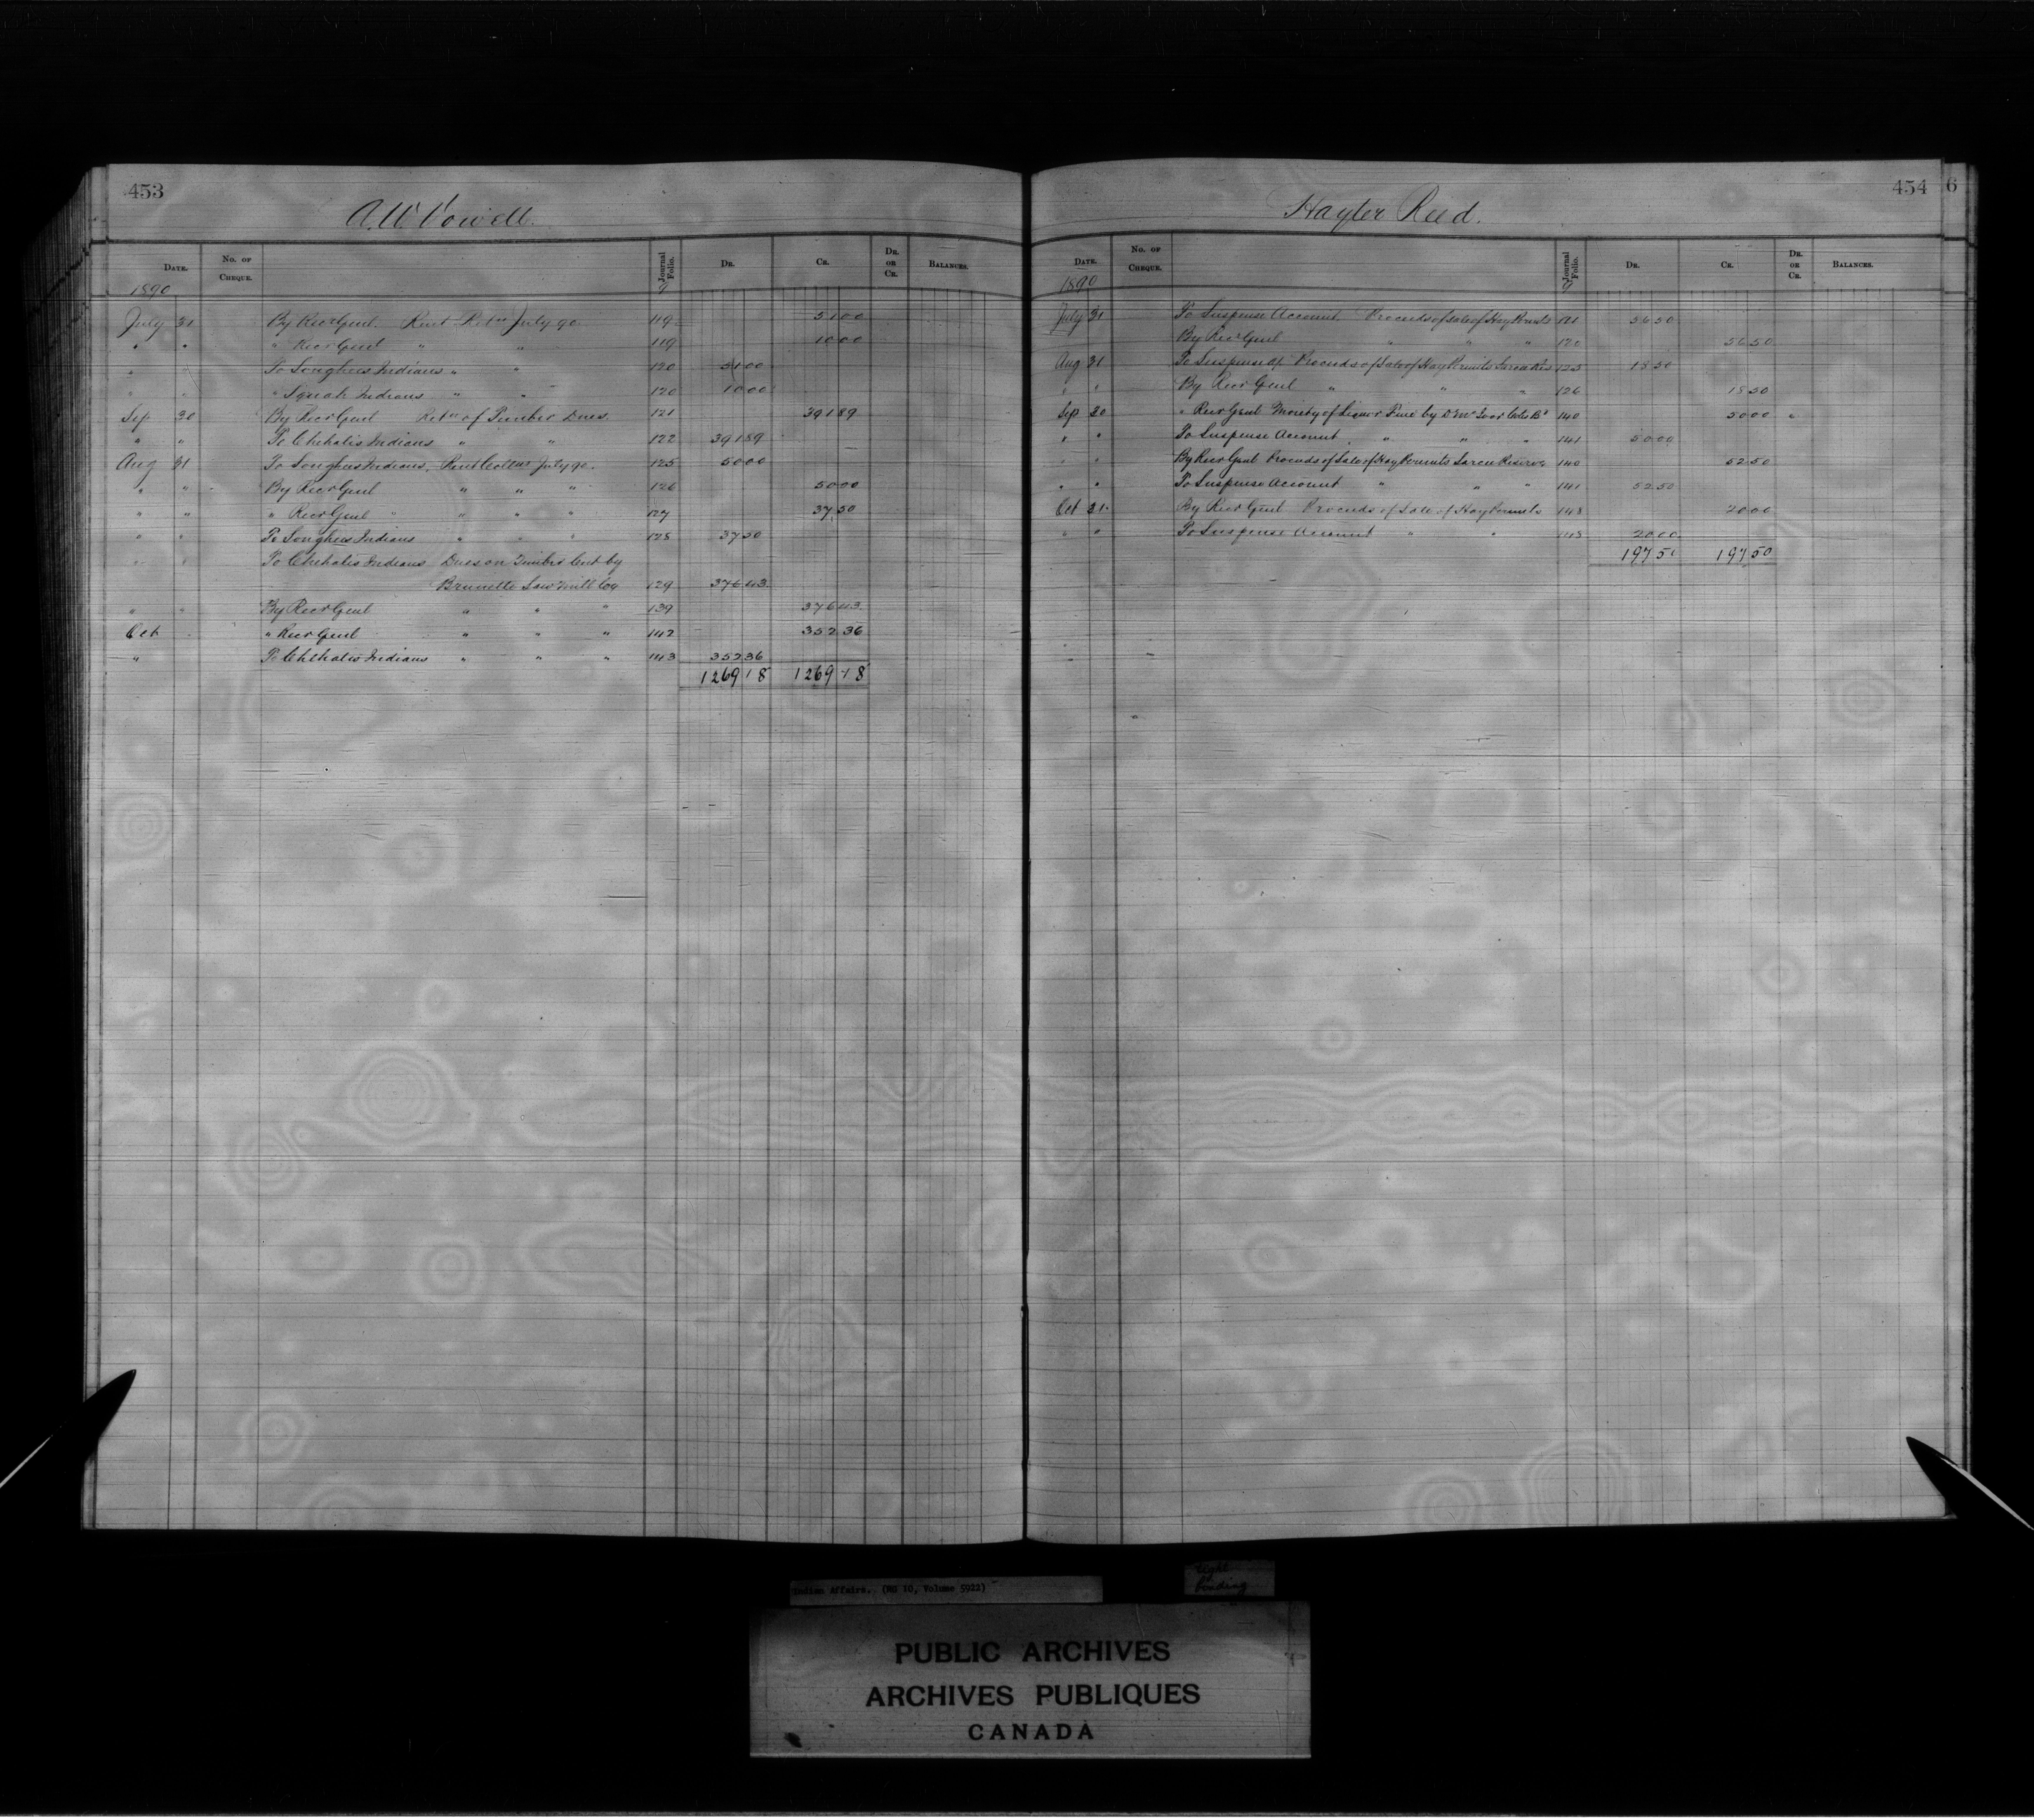 453
A.W. Vowell.
Date. No. of Cheque. Journal Folio. Dr. Cr. Dr. or Cr. Balances.
1890 9
July 31 By Recr Genl. Rent Retn July 90 119 51 00
" " " Recr Genl " " 119 10 00
" To Songhees Indians " " 120 51 00
" " " Indians " " 120 10 00
Sep 30 By Recr Genl Retn of Timber Dues 121 391 89
" " To Chehalis Indians " " 122 391 89
Aug 31 To Songhees Indians, Rent Collns July 90. 125 50 00
" " By Recr Genl " " " 126 50 00
" " " Recr Genl " " " " 127 37 50
" " To Songhees Indians " " " 128 37 50
" " To Chehalis Indians Dues on Timber Cut by
Brunette Saw Mill Co 129 376 43
" " By Recr Genl " " " 139 376 43
Oct " Recr Genl " " " 142 352 36
" To Chehalis Indians " " " 143 352 36
1269 18 1269 18
454
6
Hayter Reed.
Date. No. of Cheque. Journal Folio. Dr. Cr. Dr. or Cr. Balances.
1890 9
July 31 To Suspense Account Proceeds of Sale of Hay Permits 121 56 50
By Recr Genl " " " 120 56 50
Aug 31 To Suspense a/c Proceeds of Sale of Hay Permits Sarcee Res 125 18 50
" " By Recr Genl " " " 126 18 50
Sep 30 " Recr Genl Moiety of Liquor Fine by D. 140 50 00 "
" " To Suspense Account " " " 141 50 00
" " By Recr Genl Proceeds of Sale of Hay Permits Sarcee Reserve 140 52 50
" " To Suspense Account " " " 141 52 50
Oct 31 By Recr Genl Proceeds of Sale of Hay Permits 148 20 00
" " To Suspense Account " " 20 00
197 50 197 50
Indian Affairs. (RG 10, Volume 5922)
tight
binding
PUBLIC ARCHIVES
ARCHIVES PUBLIQUES
CANADA